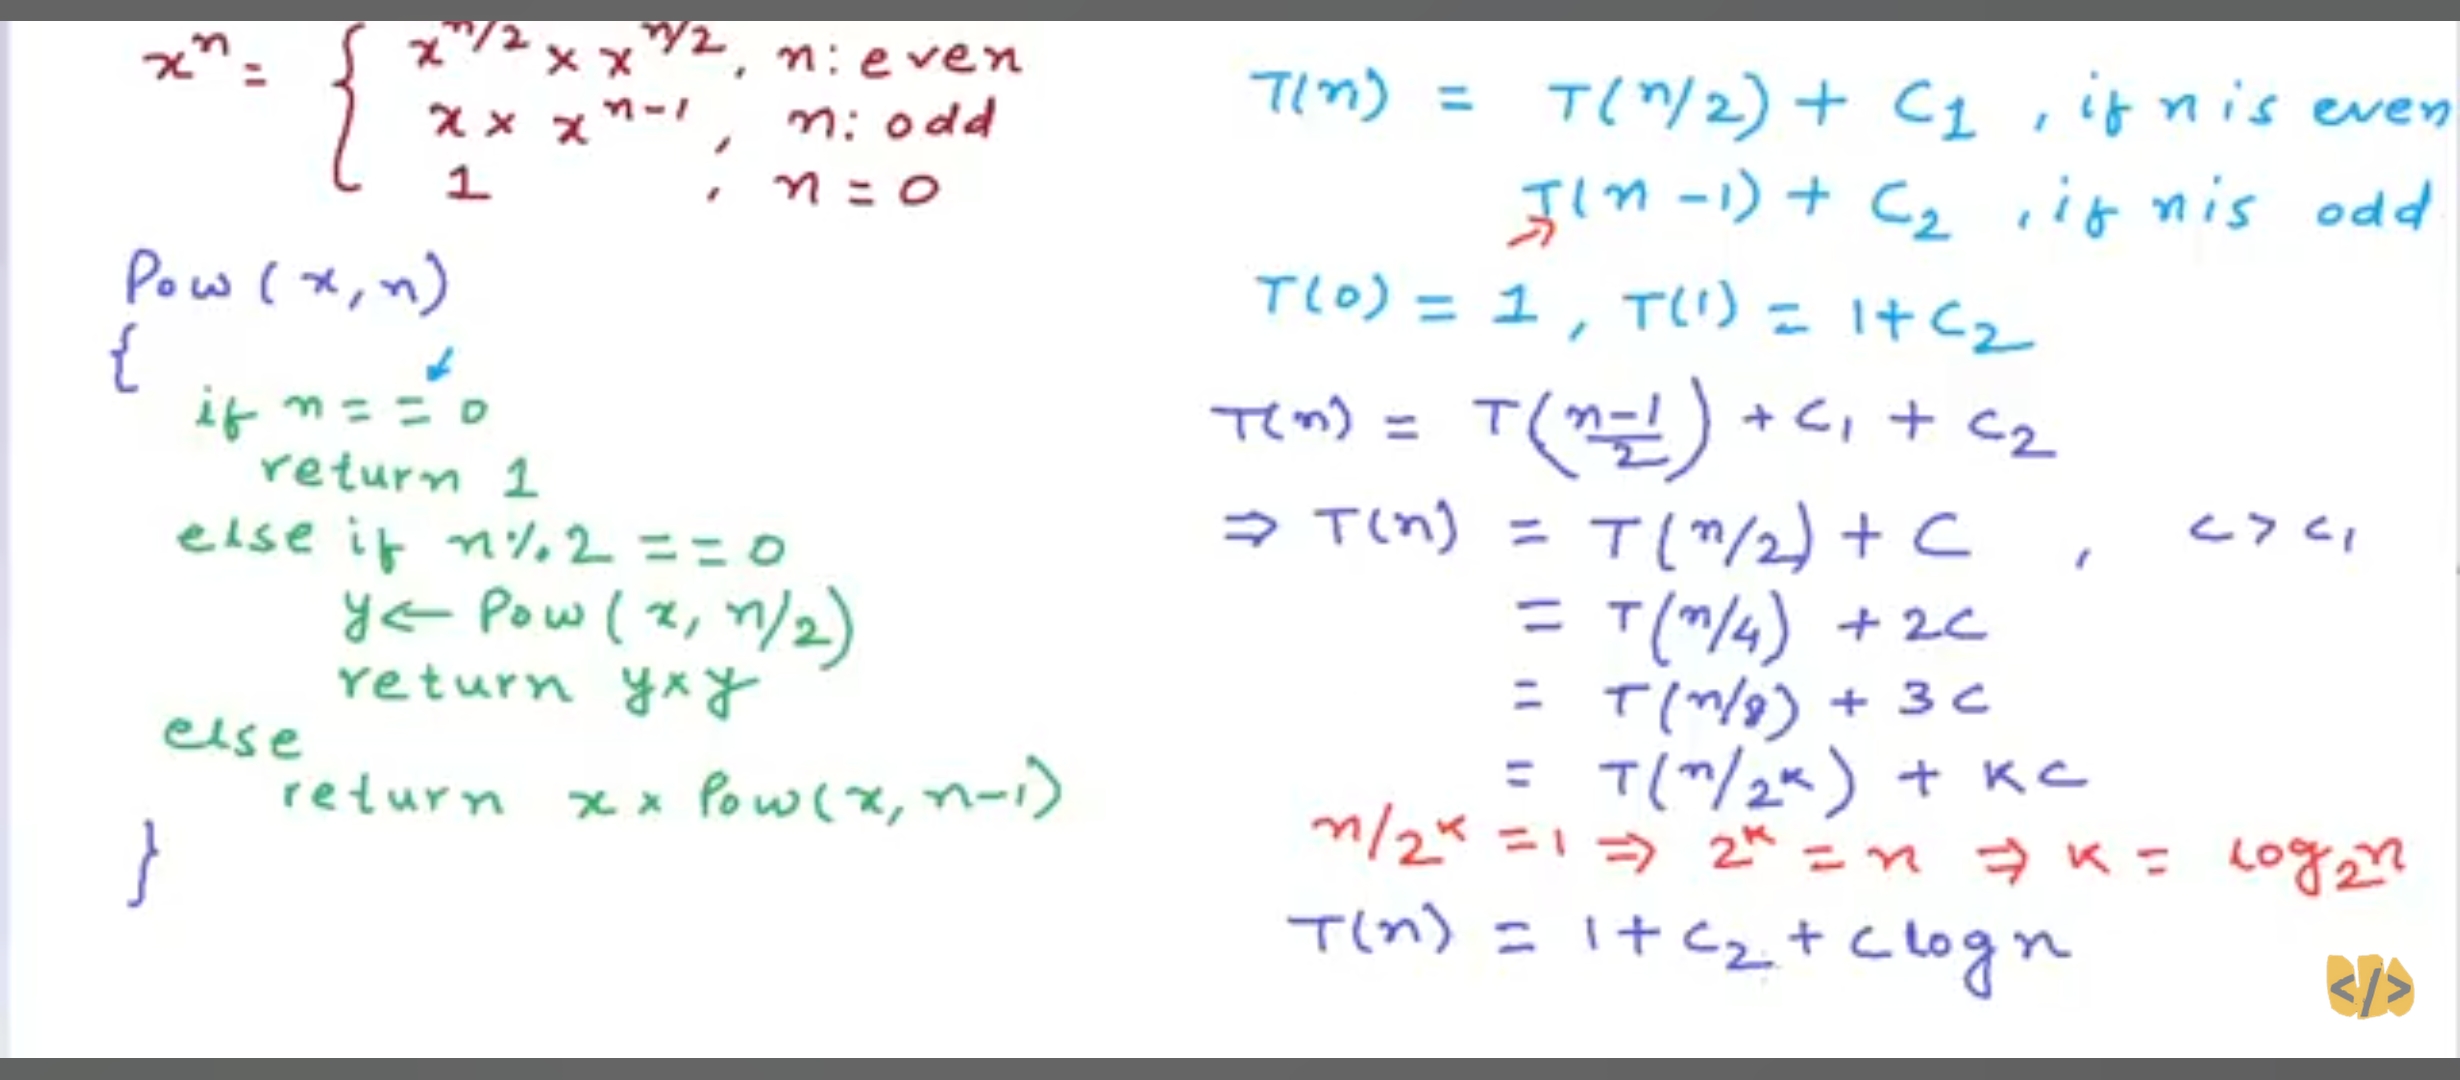 xⁿ = { x^n/2 × x^n/2, n: even
x × x^n-1, n: odd
1, n = 0
Pow(x, n)
{
if n == 0
return 1
else if n % 2 == 0
y ← Pow(x, n/2)
return y × y
else
return x × Pow(x, n-1)
}
T(n) = T(n/2) + C1, if n is even
T(n-1) + C2, if n is odd
T(0) = 1, T(1) = 1 + C2
T(n) = T((n-1)/2) + C1 + C2
⇒ T(n) = T(n/2) + C, C > C1
= T(n/4) + 2C
= T(n/8) + 3C
= T(n/2^K) + KC
n/2^K = 1 ⇒ 2^K = n ⇒ K = log₂n
T(n) = 1 + C2 + C log n
</>